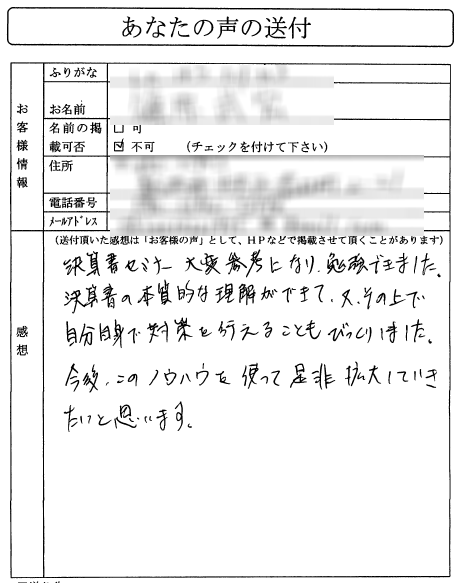 あなたの声の送付
お客様情報
ふりがな
お名前
名前の掲載可否
□ 可
☑ 不可 (チェックを付けて下さい)
住所
電話番号
メールアドレス
感想
(送付頂いた感想は「お客様の声」として、HPなどで掲載させて頂くことがあります)
決算書セミナー 大変参考になり、勉強できました。
決算書の本質的な理解ができて、又、その上で
自分自身で対策を行えることもびっくりしました。
今後、このノウハウを使って是非拡大していき
たいと思います。